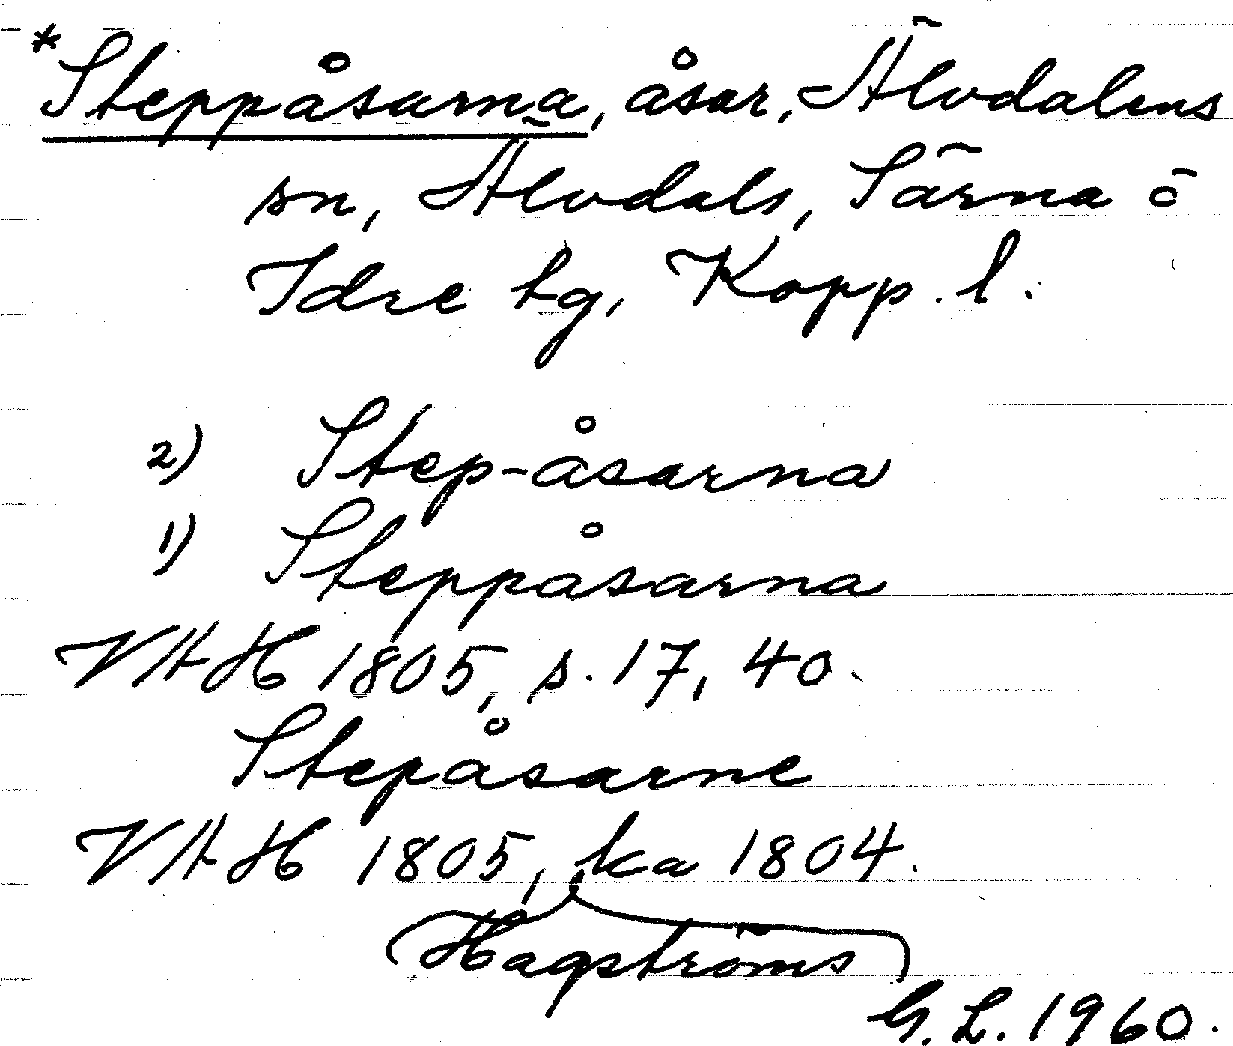 *Steppåsarna, åsar, Älvdalens
sn, Älvdals, Särna ō
Idre tg, Kopp. l.
2) Step-åsarna
1) Steppåsarna
VAH 1805, s. 17, 40.
Stepåsarne
VAH 1805, ka 1804.
Hagströms
G. L. 1960.